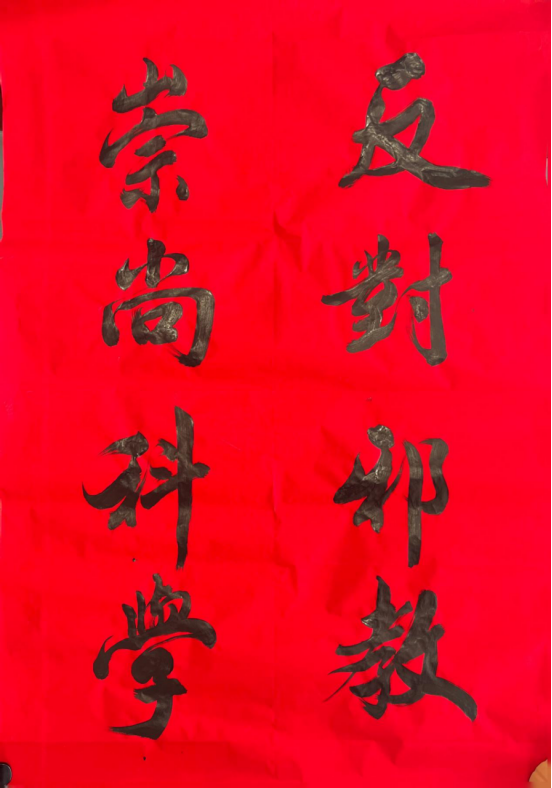 反對邪教
崇尚科學